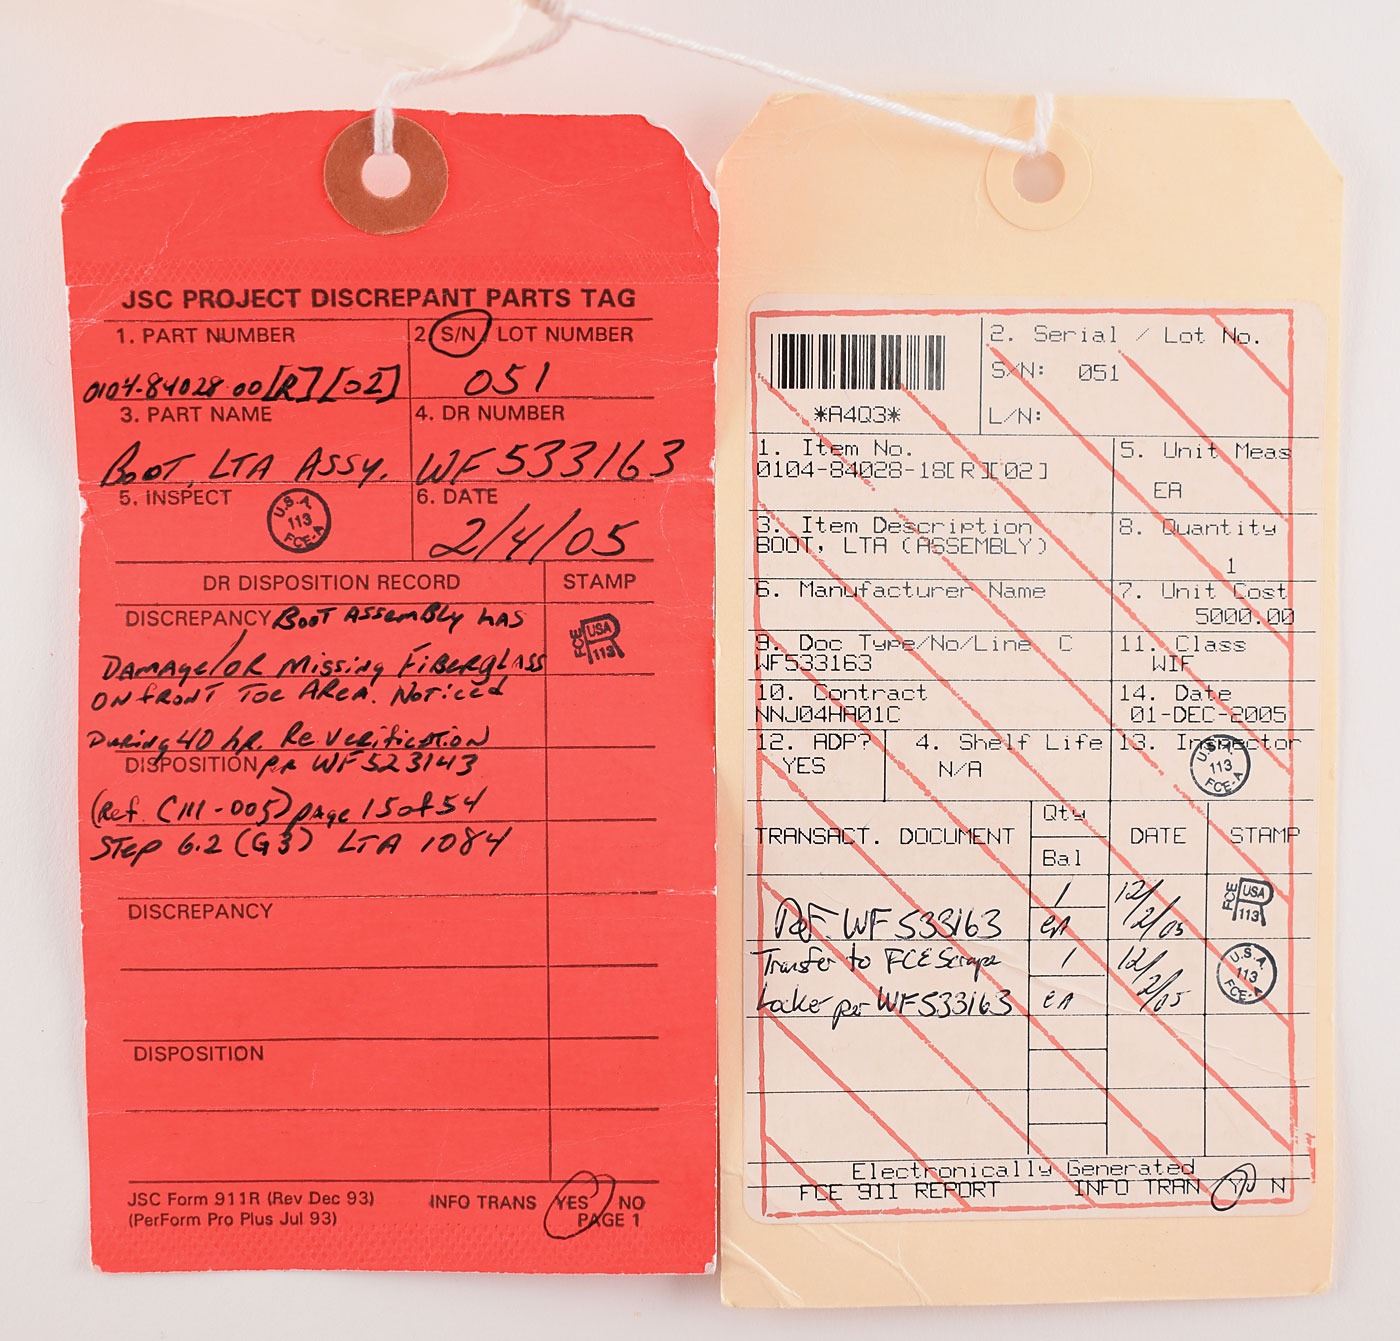 JSC PROJECT DISCREPANT PARTS TAG
1. PART NUMBER
2 S/N/ LOT NUMBER
0104-84028-00[R][02]
051
3. PART NAME
4. DR NUMBER
BOOT, LTA ASSY.
WF533163
5. INSPECT
6. DATE
U.S.A.
113
FCE-A
2/4/05
DR DISPOSITION RECORD
STAMP
DISCREPANCY BOOT ASSEMBLY HAS
FCE
USA
113
DAMAGE/OR Missing FIBERGLASS
ON fRONT TOE AREA. NOTICED
During 40 hR. Re Verification
DISPOSITION PR WF523143
(Ref. C111-005) page 15 of 54
STEP 6.2 (G3) LTA 1084
DISCREPANCY
DISPOSITION
JSC Form 911R (Rev Dec 93)
(PerForm Pro Plus Jul 93)
INFO TRANS YES NO
PAGE 1
*A4Q3*
2. Serial / Lot No.
S/N: 051
L/N:
1. Item No.
0104-84028-18[R][02]
5. Unit Meas
EA
3. Item Description
BOOT, LTA (ASSEMBLY)
8. Quantity
1
6. Manufacturer Name
7. Unit Cost
5000.00
9. Doc Type/No/Line C
WF533163
11. Class
WIF
10. Contract
NNJ04HA01C
14. Date
01-DEC-2005
12. ADP?
YES
4. Shelf Life
N/A
13. Inspector
U.S.A.
113
FCE-A
TRANSACT. DOCUMENT
Qty
Bal
DATE
STAMP
Ref: WF533163
1
EA
12/2/05
FCE
USA
113
Transfer to FCE Scrape
Locker per WF533163
1
EA
12/2/05
U.S.A.
113
FCE-A
Electronically Generated
FCE 911 REPORT
INFO TRAN Y N